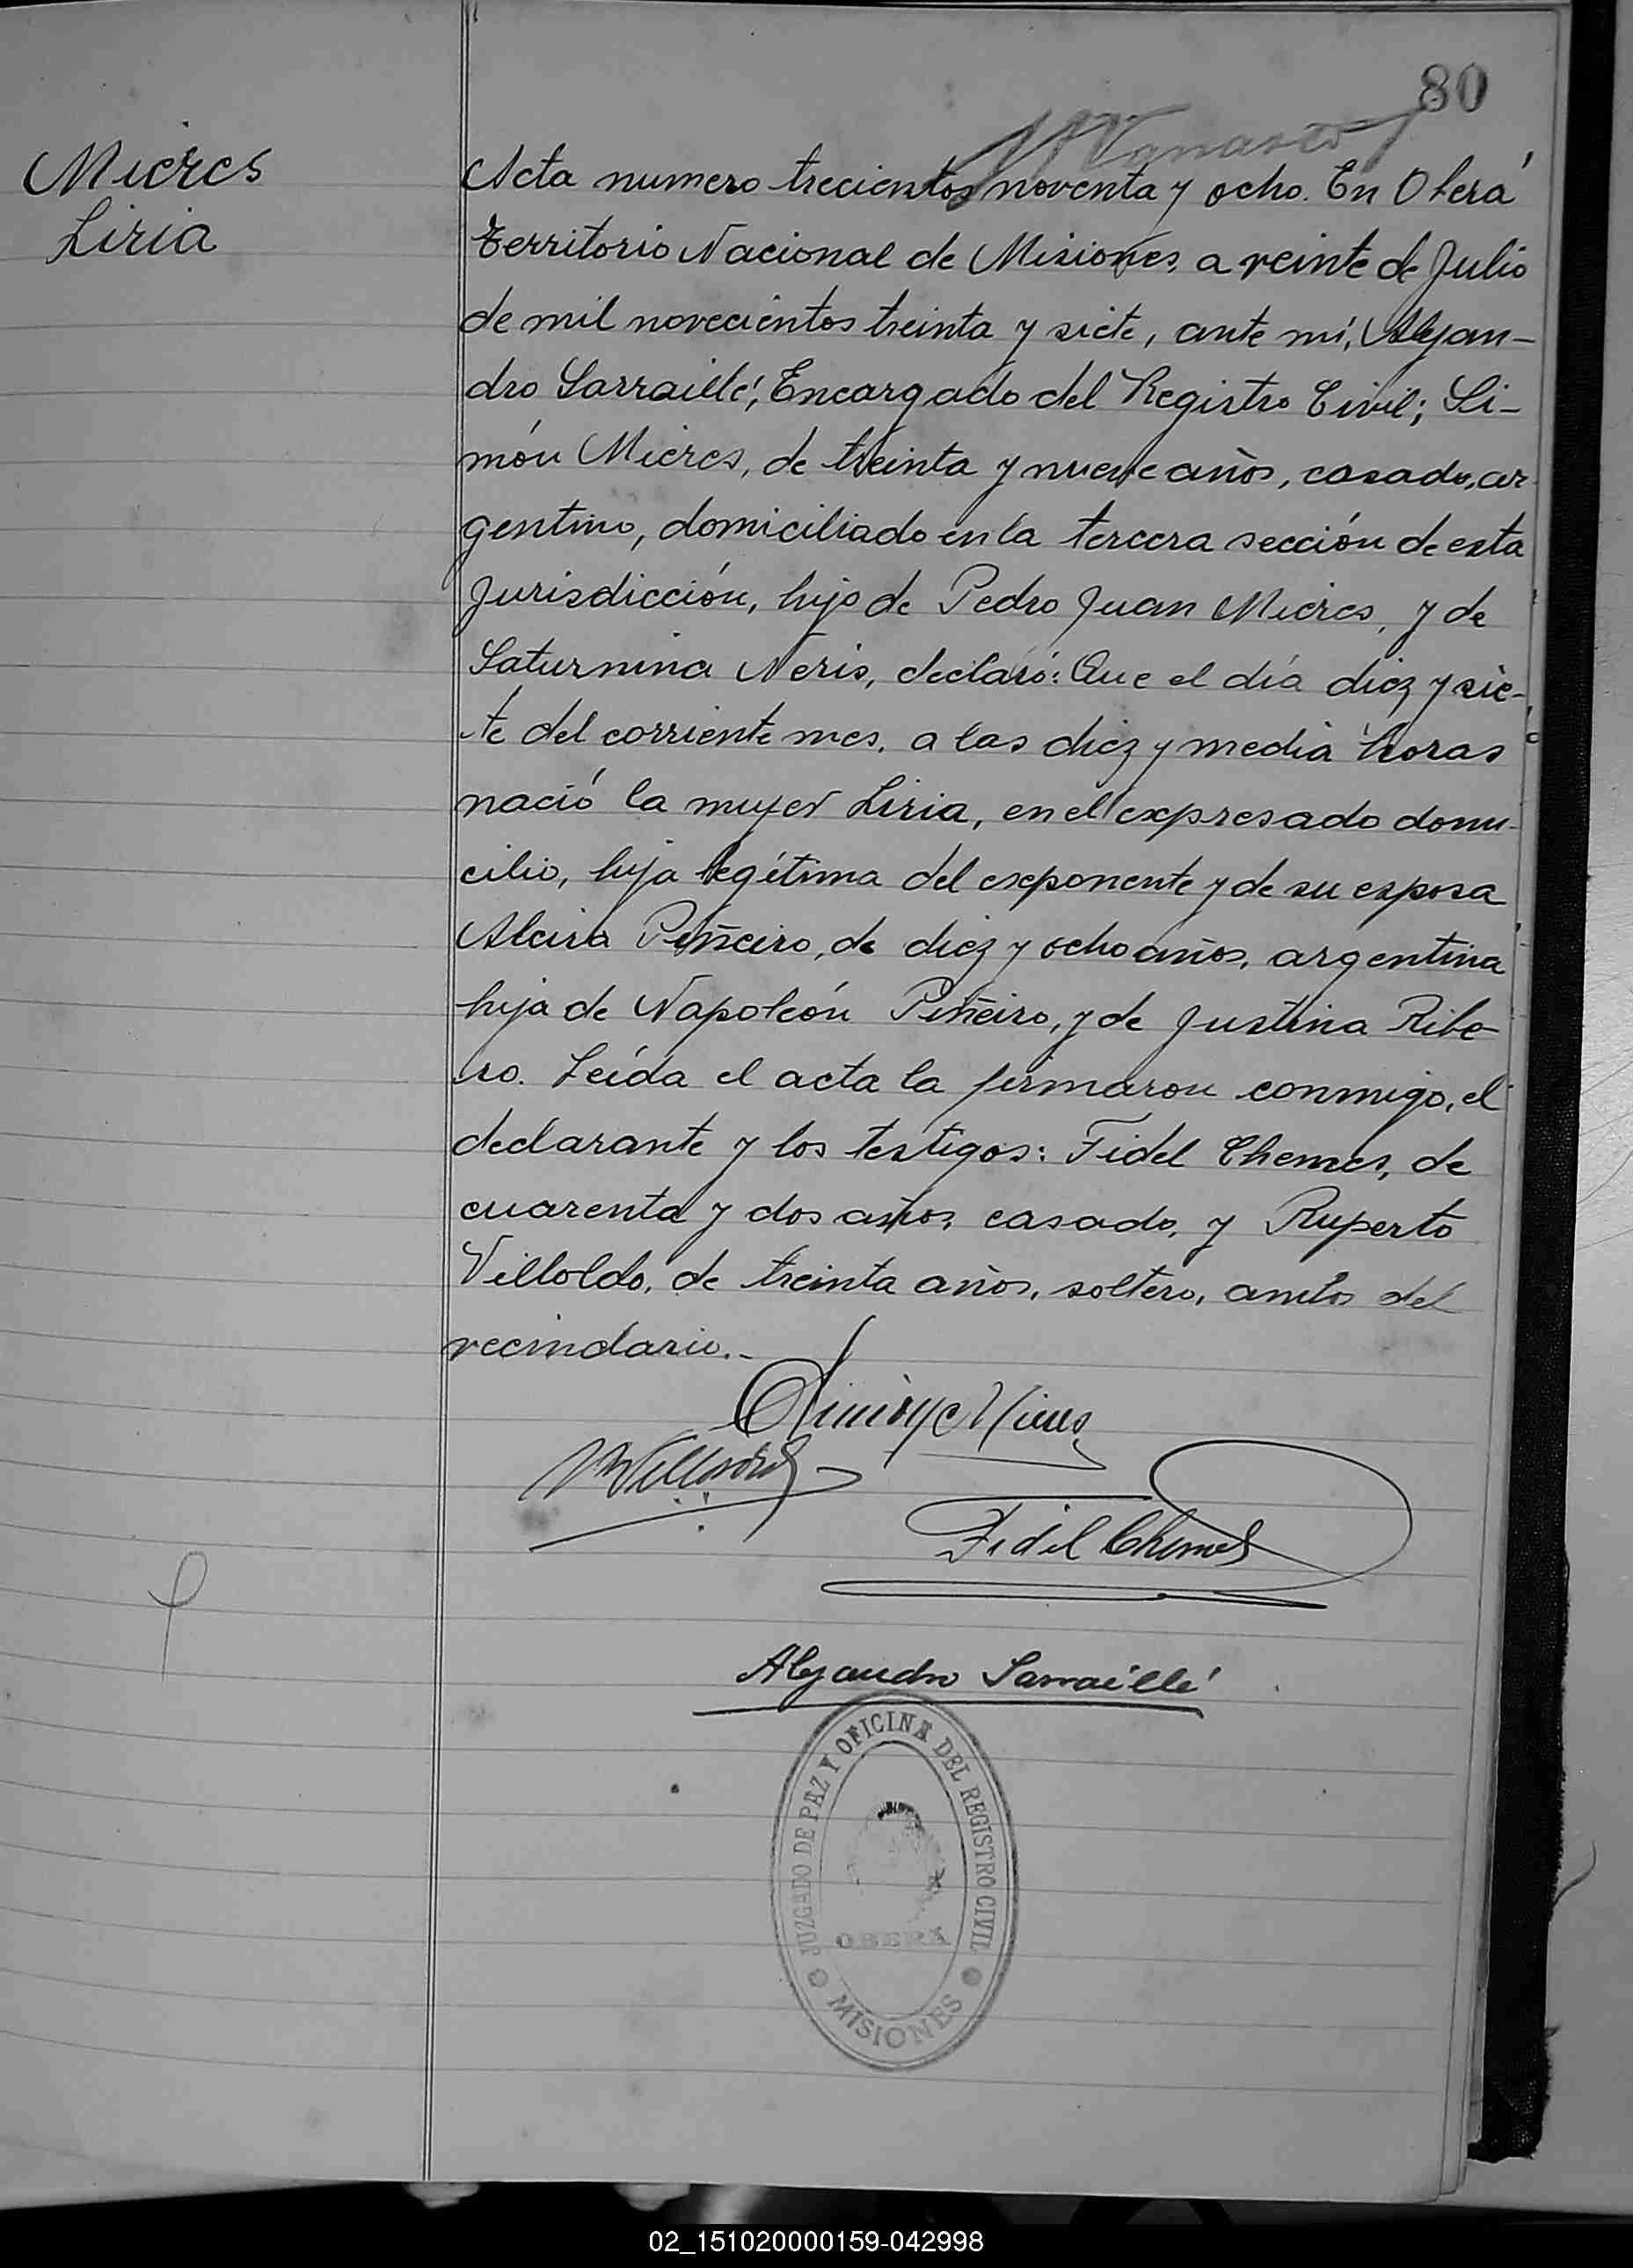 80
Mieres
Liria
Acta numero trecientos noventa y ocho. En Oberá
Territorio Nacional de Misiones, a veinte de Julio
de mil novecientos treinta y siete, ante mí, Alejan-
dro Sarraillé, Encargado del Registro Civil; Si-
món Mieres, de treinta y nueve años, casado, ar
gentino, domiciliado en la tercera sección de esta
Jurisdicción, hijo de Pedro Juan Mieres, y de
Saturnina Neris, declaró: Que el día diez y sie-
te del corriente mes, a las diez y media horas
nació la mujer Liria, en el expresado domi-
cilio, hija legítima del exponente y de su esposa
Alcira Piñeiro, de diez y ocho años, argentina
hija de Napoleón Piñeiro, y de Justina Ribe-
ro. Leída el acta la firmaron conmigo, el
declarante y los testigos: Fidel Chemes, de
cuarenta y dos años, casado, y Ruperto
Villoldo, de treinta años, soltero, ambos del
vecindario.-
Simón Mieres
RVilloldo
Fidel Chemes
Alejandro Sarraillé
JUZGADO DE PAZ Y OFICINA DEL REGISTRO CIVIL
OBERÁ
MISIONES
02_151020000159-042998